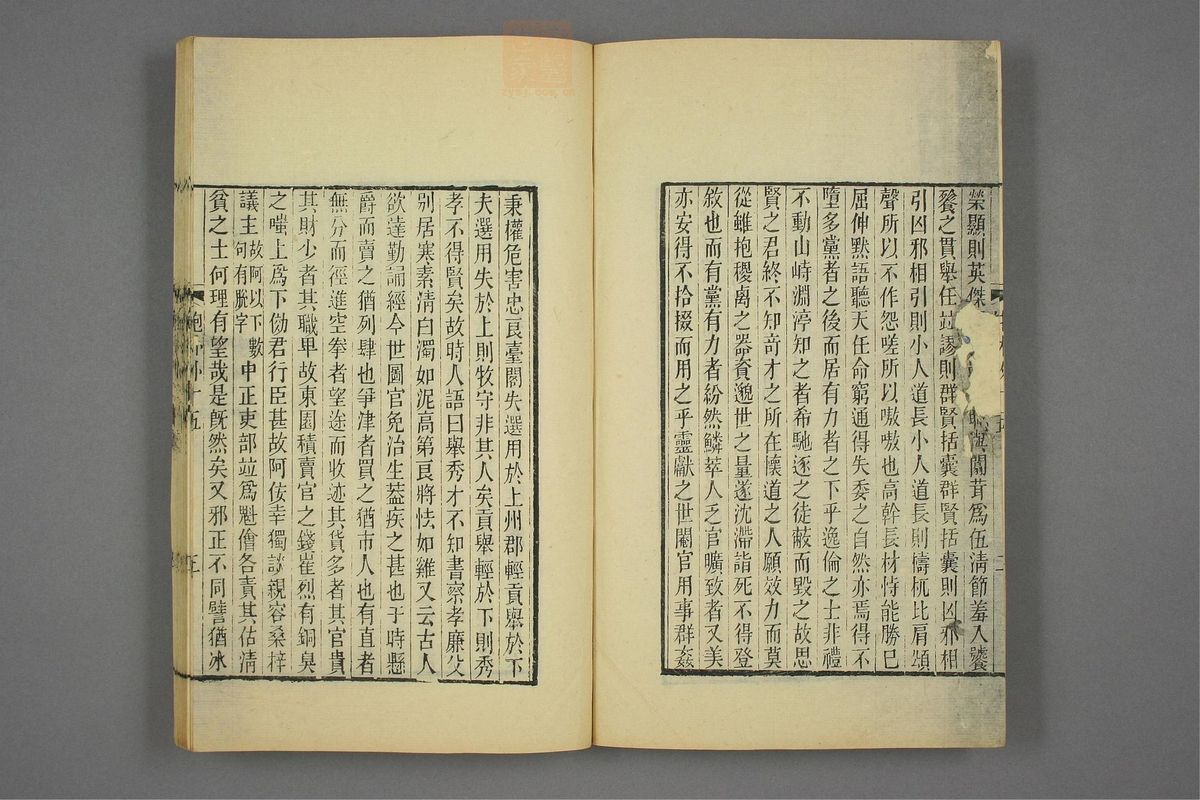 榮顯則英傑 恥與闒茸爲伍清節羞入饕
餮之貫舉任並謬則群賢括囊群賢括囊則凶邪相
引凶邪相引則小人道長小人道長則檮杌比肩頌
聲所以不作怨嗟所以嗷嗷也高幹長材恃能勝己
屈伸默語聽天任命窮通得失委之自然亦焉得不
墮多黨者之後而居有力者之下乎逸倫之士非禮
不動山峙淵渟知之者希馳逐之徒蔽而毀之故思
賢之君終不知竒才之所在懷道之人願效力而莫
從雖抱稷卨之器資邈世之量遂沈滯詣死不得登
敘也而有黨有力者紛然鱗萃人乏官曠致者又美
亦安得不拾掇而用之乎靈獻之世閹官用事群姦
秉權危害忠良臺閣失選用於上州郡輕貢舉於下
夫選用失於上則牧守非其人矣貢舉輕於下則秀
孝不得賢矣故時人語曰舉秀才不知書察孝廉父
別居寒素清白濁如泥高第良將怯如雞又云古人
欲達勤誦經今世圖官免治生葢疾之甚也于時懸
爵而賣之猶列肆也爭津者買之猶市人也有直者
無分而徑進空拳者望途而收迹其貨多者其官貴
其財少者其職卑故東園積賣官之錢崔烈有銅臭
之嗤上爲下傚君行臣甚故阿佞幸獨談親容桑梓
議主故阿以下數何有脫字中正吏部並爲魁儈各責其估清
貧之士何理有望哉是旣然矣又邪正不同譬猶冰
抱 外十五
三